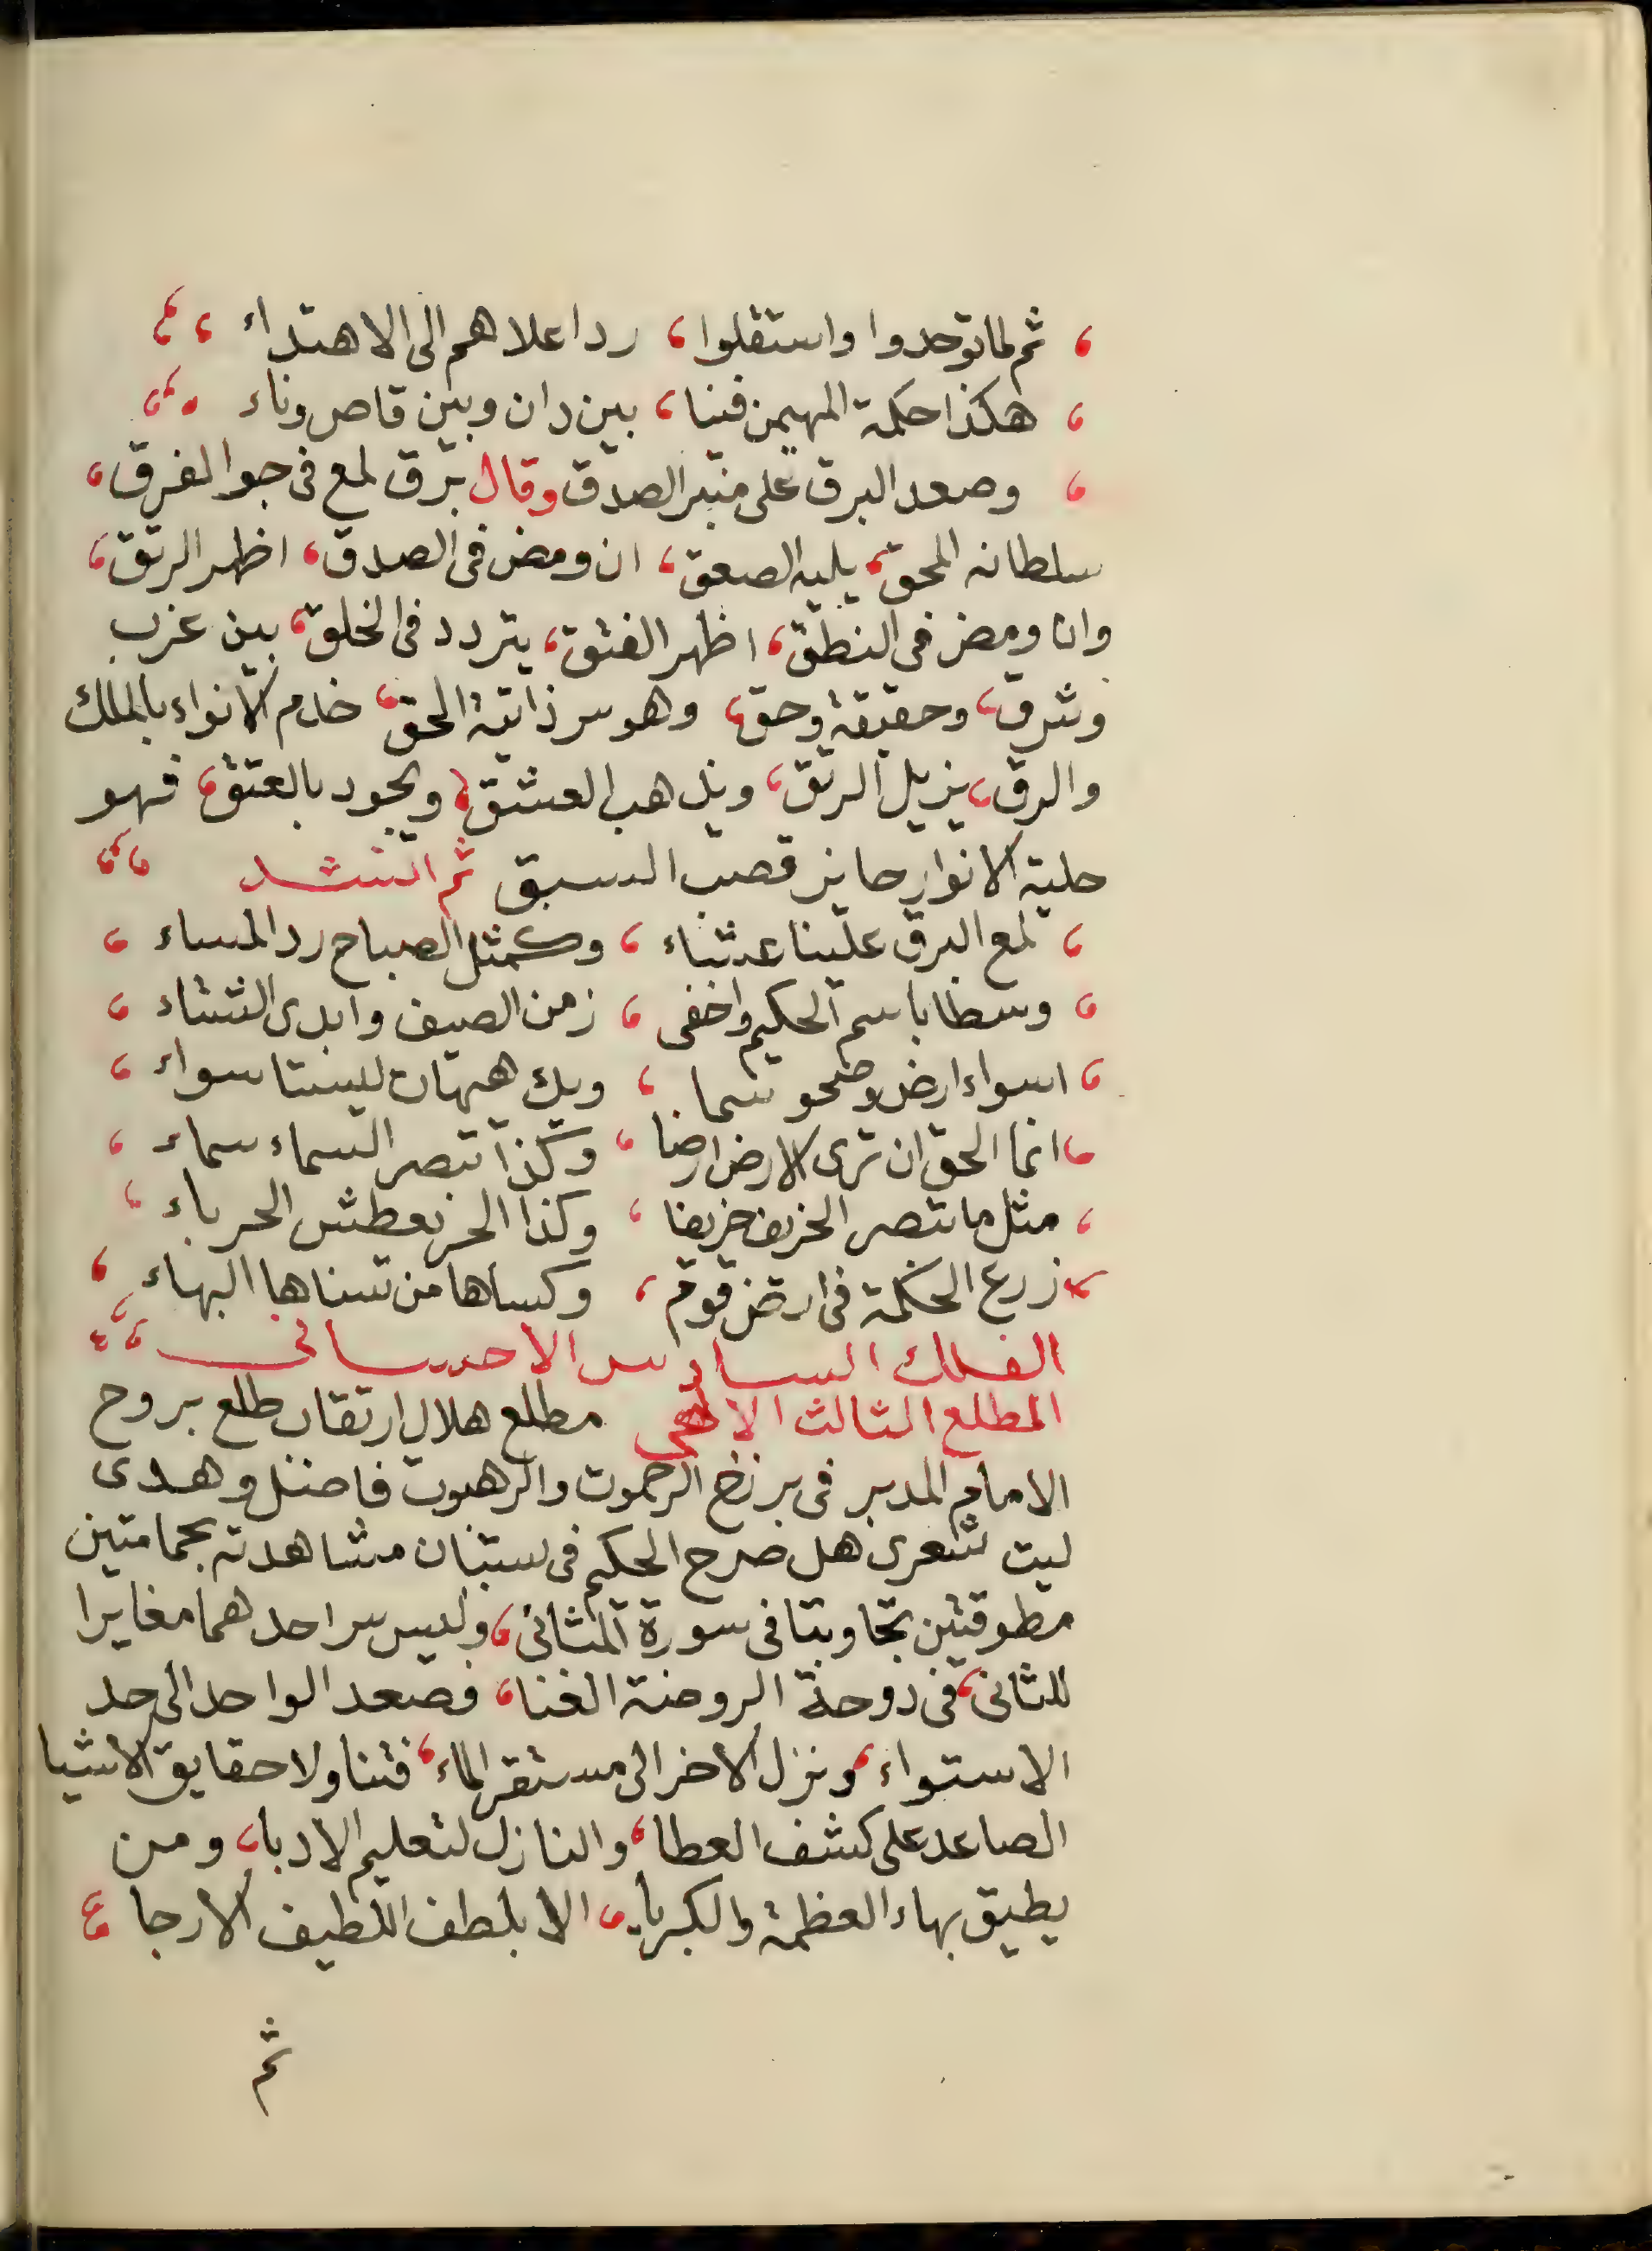 ، ثم لما توحدوا واستقلوا ، رد اعلاهم الى الاهتداء ،،
، هكذا حكمة المهيمن فينا ، بين دان وبين قاص وناء ،،
، وصعد البرق على منبر الصدق وقال برق لمع فى جو الفرق ،
سلطانه المحق ، يليه الصعق ، ان ومض فى الصدق ، اظهر الرتق ،
وان ومض فى النطق ، اظهر الفتق ، يتردد فى الخلق ، بين غرب
وشرق ، وحقيقة وحق ، وهو سر ذاتية الحق ، خادم الانواء بالملك
والرق ، يزيل الرتق ، ويذهب العشق ، ويجود بالعتق ، فهو
حلية الانوار حايز قصب السبق ثم انشد ،،
، لمع البرق علينا عشاء ، وكمثل الصباح رد المساء ،
، وسطا باسم الحكيم واخفى ، زمن الصيف وابدى الشتاء ،
، اسواء ارض وصحو سما ، ويك هيهات ليستا سواء ،
، انما الحق ان ترى الارض ارضا ، وكذا تبصر السماء سماء ،
، مثل ما تبصر الخريف خريفا ، وكذا الحر يعطش الحرباء ،
، زرع الحكمة فى ارض قوم ، وكساها من سناها البهاء ،
الفلك السادس الاحسانى ،،
المطلع الثالث الالهى مطلع هلال ارتقاب طلع بروح
الامام المدبر فى برزخ الرحموت والرهبوت فاضل وهدى
ليت شعرى هل صرح الحكيم فى بستان مشاهدته بحمامتين
مطوقتين تجاوبتا فى سورة المثانى ، وليس سر احدهما مغايرا
للثانى ، فى دوحة الروضة الغنا ، فصعد الواحد الى حد
الاستواء ، ونزل الاخر الى مستقر الماء ، فتناولا حقايق الاشيا
الصاعد على كشف العطا ، والنازل لتعليم الادبا ، ومن
يطيق بهاء العظمة والكبريا ، الا بلطف اللطيف الارجا ،،
ثم